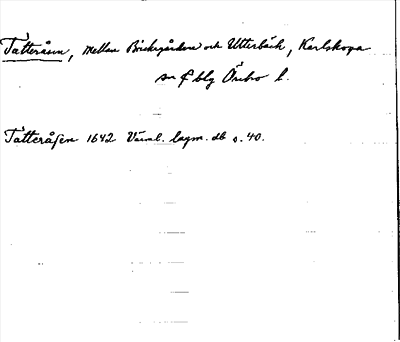 Tatteråsen, mellan Bricksgården och Utterbäck, Karlskoga
sn o bg Örebro l.
Tatteråsen 1642 Värml. lagm. db s. 40.